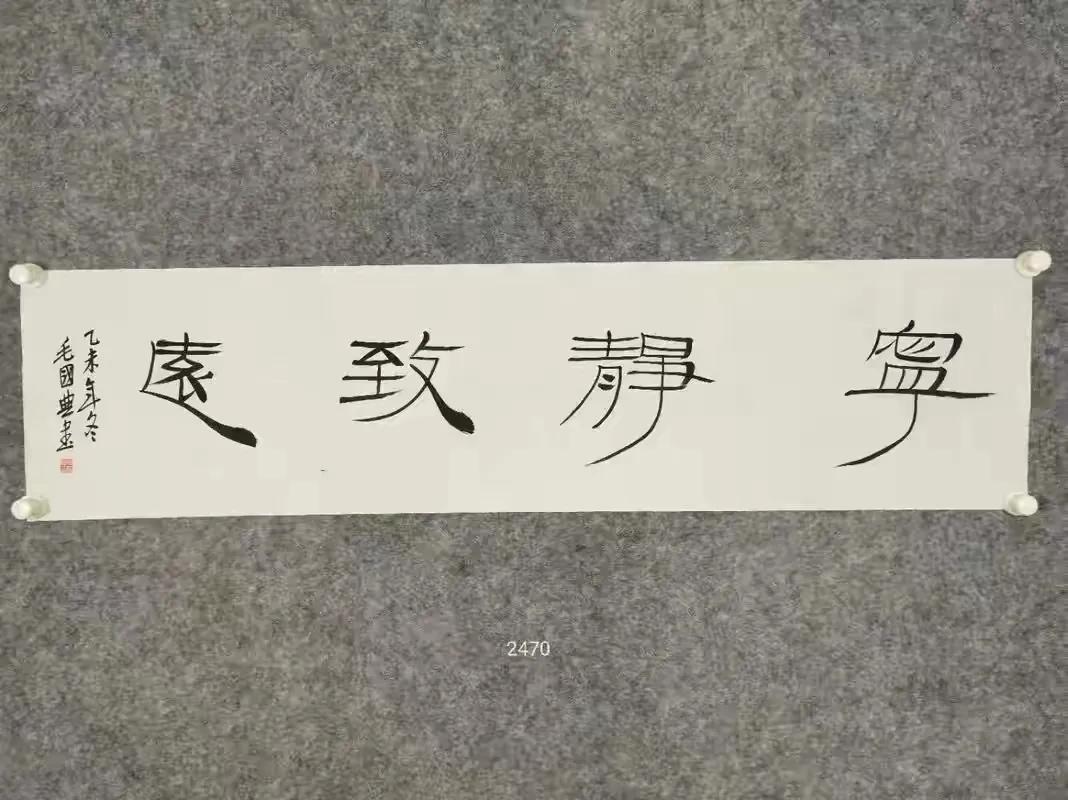 寧靜致遠
乙未年冬
毛國典書
2470